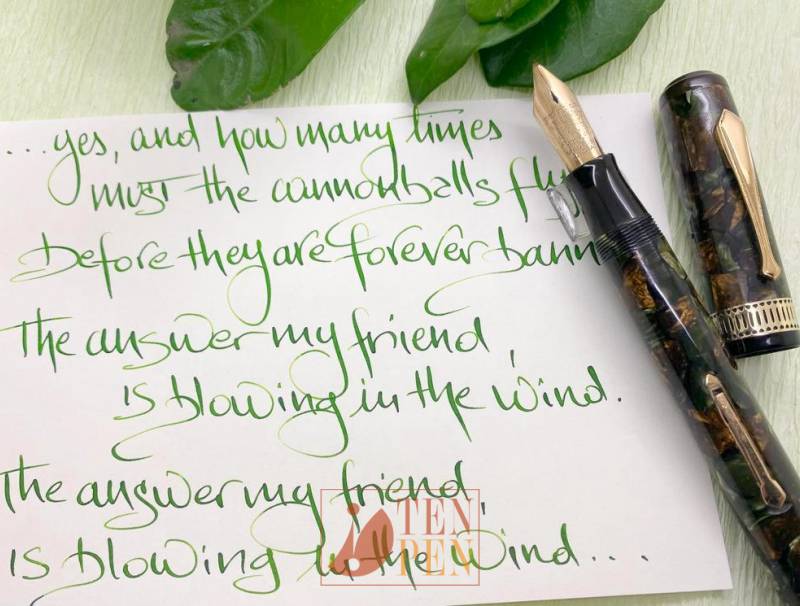 ...yes, and how many times
must the cannonballs fly
Before they are forever bann
The answer my friend,
is blowing in the wind.
The answer my friend,
is blowing in the wind...
TEN
PEN